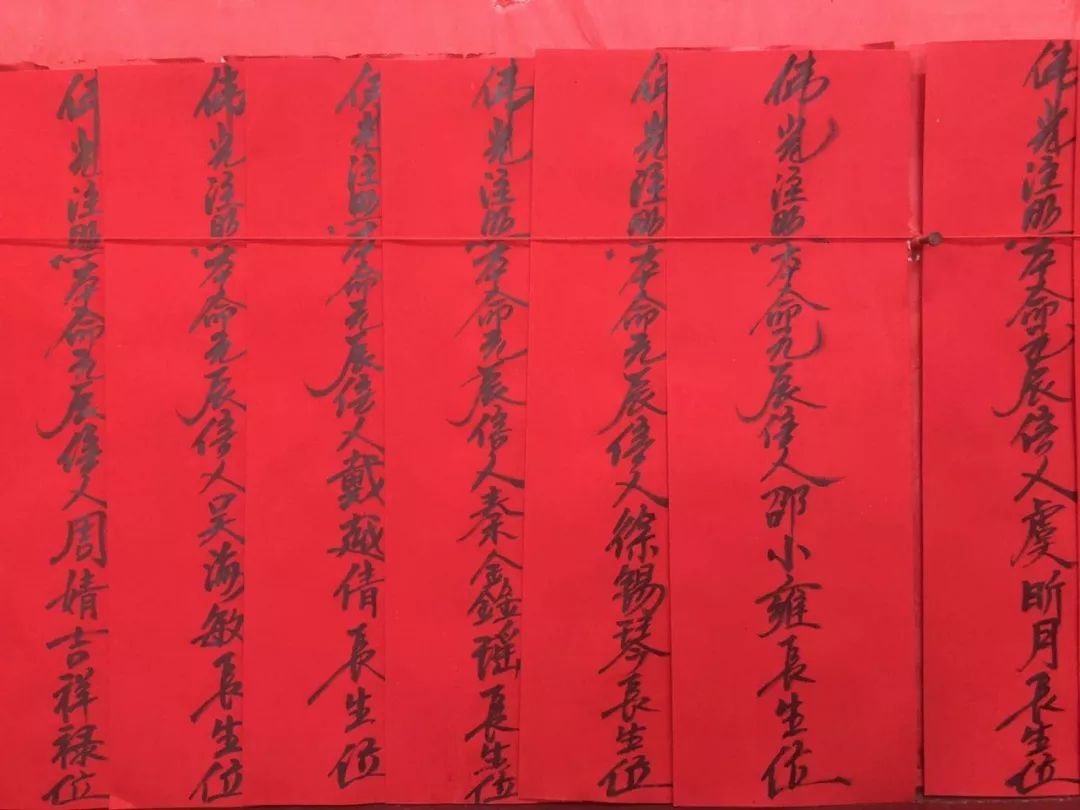 佛光注照本命元辰信人虞昕月長生位
佛光注照本命元辰信人邵小雍長生位
佛光注照本命元辰信人徐锡琴長生位
佛光注照本命元辰信人秦鑫瑶長生位
佛光注照本命元辰信人戴越倩長生位
佛光注照本命元辰信人吴海敏長生位
佛光注照本命元辰信人周婧吉祥禄位